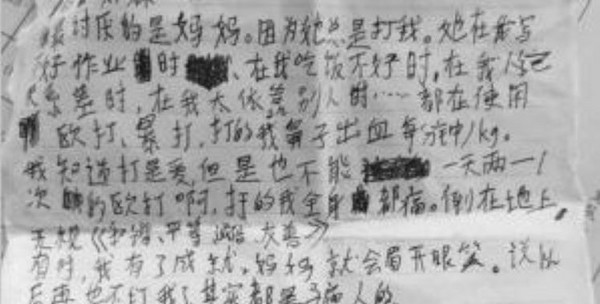 讨厌的是妈妈。因为她总是打我。她在我写
好作业时、在我吃饭不好时,在我
差时,在我太依靠别人时……都在使用
欧打、暴打,打的我鼻子出血每分钟1kg。
我知道打是爱,但是也不能一天两一
次的欧打啊,打的我全身都痛。倒在地上,
无视《平等 友善》
有时,我有了成就,妈妈就会眉开眼笑。说以
后再也不打我了其实都是骗人的